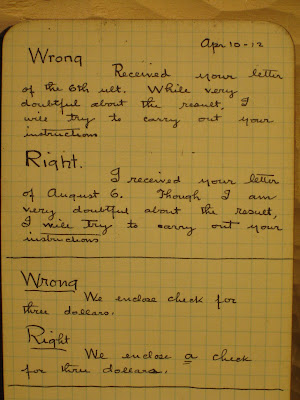 Apr 10-12
Wrong
Received your letter
of the 6th ult. While very
doubtful about the result, I
will try to carry out your
instructions
Right.
I received your letter
of August 6. Though I am
very doubtful about the result,
I will try to carry out your
instructions
Wrong
We enclose check for
three dollars.
Right
We enclose a check
for three dollars.